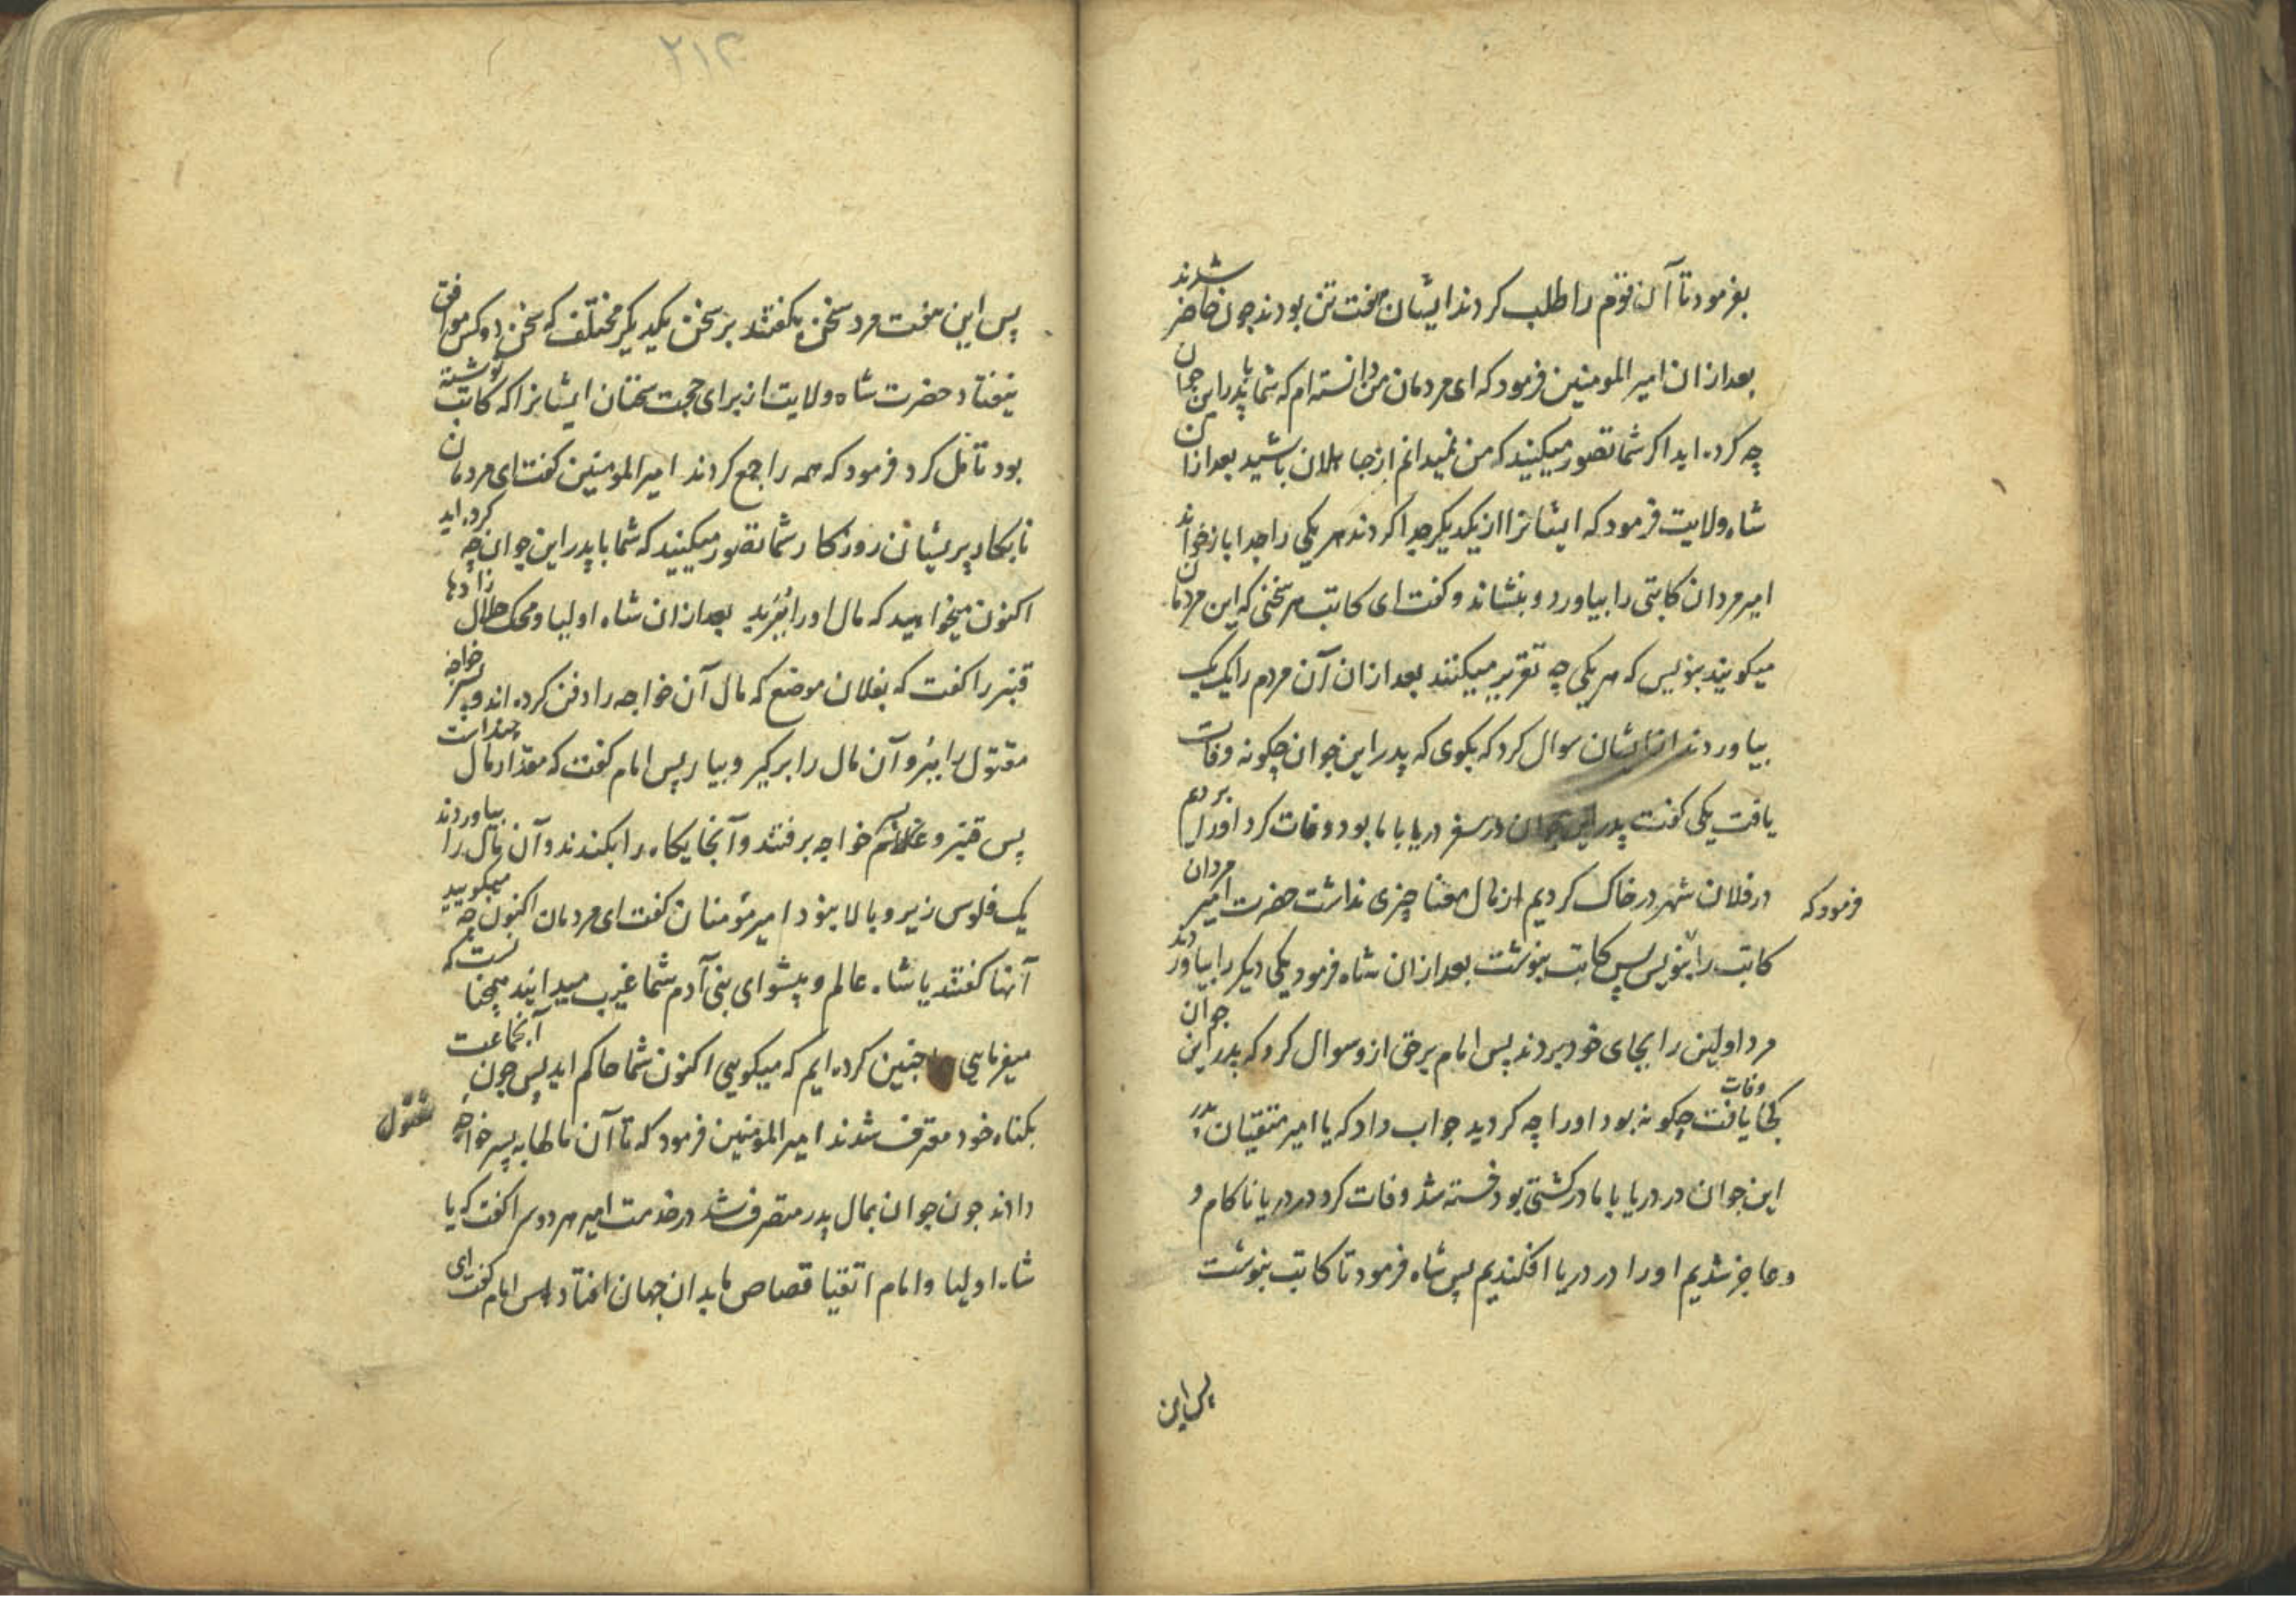 بفرمود تا آن قوم را طلب کردند ایشان هفت تن بودند چون حاضر شدند
بعد از ان امیر المومنین فرمود که ای مردمان من دانسته ام که شما با پدر این جوان
چه کرده اید اگر شما تصور میکنید که من نمیدانم از جاهلان باشید بعد از ان
شاه ولایت فرمود که ایشانرا از یکدیگر جدا کردند هر یکی را جدا باز خواند
امیر مردان کاتبی را بیاورد و بنشاند و کفت ای کاتب هر سخنی که این مردمان
میکویند بنویس که هر یکی چه تقریر میکنند بعد از ان آن مردم را یک یک
بیاوردند از ایشان سوال کرد که بکوی که پدر این جوان چکونه وفات
یافت یکی کفت پدر این جوان در سفر دریا با ما بود وفات کرد اورا بردیم
در فلان شهر در خاک کردیم از مال هیچ چیزی نداشت حضرت امیر مردان
فرمود که
کاتب را بنویس پس کاتب بنوشت بعد از ان شاه فرمود یکی دیکر را بیاوردند
مرد اولین را بجای خود بردند پس امام برحق ازو سوال کرد که پدر این جوان
کجا وفات یافت چکونه بود اورا چه کردید جواب داد که یا امیر متقیان پدر
این جوان در دریا با ما در کشتی بود خسته شد وفات کرد در دریا ناکام و
و عاجز شدیم اورا در دریا افکندیم پس شاه فرمود تا کاتب بنوشت
پس این
۲۱۴
پس این هفت مرد سخن بکفتند بر سخن یکدیکر مختلف که سخن دو کس موافق
نیفتاد حضرت شاه ولایت از برای حجت سخنان ایشانرا که کاتب نوشته
بود تامل کرد فرمود که همه را جمع کردند امیر المومنین کفت ای مردمان
نابکار پریشان روزکار شما تصور میکنید که شما با پدر این جوان چه کرده اید
اکنون میخواهید که مال اورا ببرید بعد از ان شاه اولیا و محک حلال زادها
قنبر را کفت که بفلان موضع که مال آن خواجه را دفن کرده اند و پسر خواجه
مقتول را ببر و آن مال را برکیر و بیار پس امام کفت که مقدار مال چند است
پس قنبر و خواجه برفتند و آنجایکاه را بکندند و آن مال را بیاوردند
یک فلوس زیر و بالا نبود امیر مؤمنان کفت ای مردمان اکنون چه میکویید
آنها کفتند یا شاه عالم و پیشوای بنی آدم شما غیب میدانید همچنانست که
میفرمایی ما چنین کرده ایم که میکویی اکنون شما حاکم اید پس چون آنجماعت
بکناه خود معترف شدند امیر المؤمنین فرمود که تا آن مالها به پسر خواجه مقتول
دادند چون جوان بمال پدر متصرف شد در خدمت امیر هر دو سرا کفت که یا
شاه اولیا و امام اتقیا قصاص ما بدان جهان افتاد پس امام کفت ای